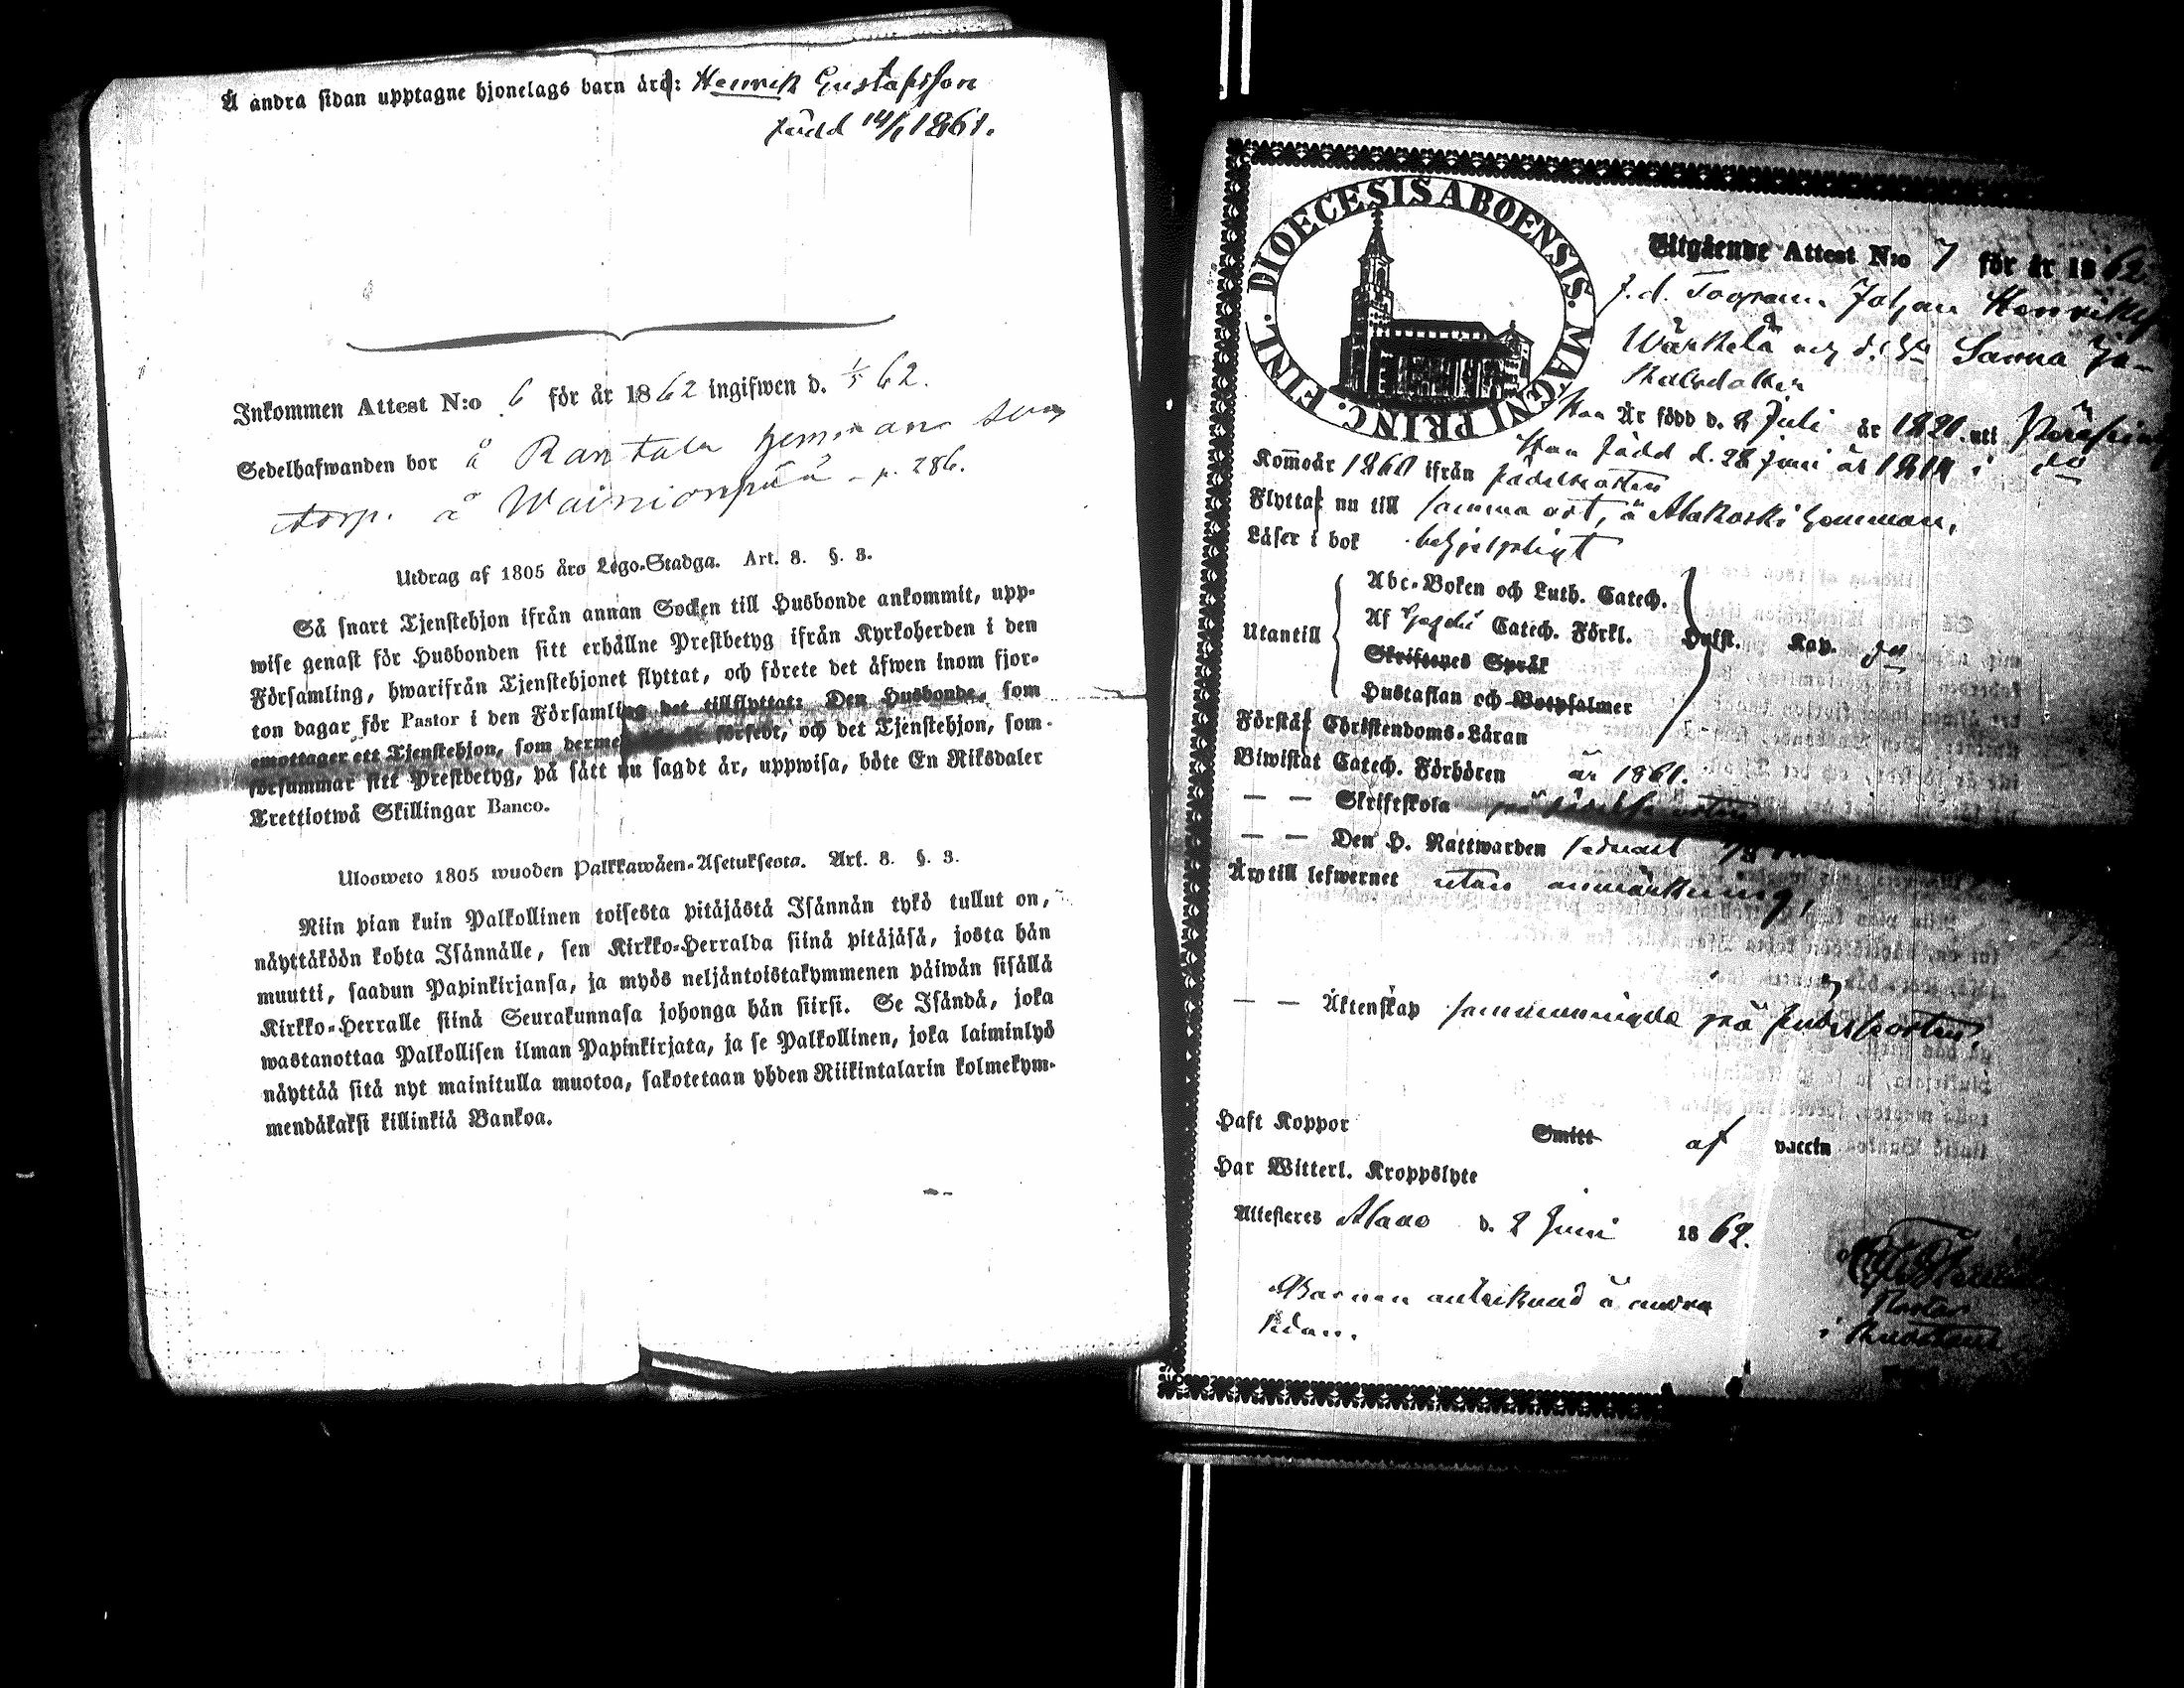 Å andra sidan upptagne hjonelags barn äro: Henrik Gustafsson
född 14/1 1861.
Inkommen Attest N:o 6 för år 1862 ingifwen d. 1/5 62.
Sedelhafwanden bor å Rantala hemman som
torp. å Wainionpää - p. 286.
Utdrag af 1805 års Lego-Stadga. Art. 8. §. 3.
Så snart Tjenstehjon ifrån annan Socken till Husbonde ankommit, upp-
wise genast för Husbonden sitt erhållne Prestbetyg ifrån Kyrkoherden i den
Församling, hwarifrån Tjenstehjonet flyttat, och förete det äfwen inom fjor-
ton dagar för Pastor i den Församling det tillflyttat: Den Husbonde, som
emottager ett Tjenstehjon, som derme försedt, och det Tjenstehjon, som
försummar sitt Prestbetyg, på sätt nu sagdt är, uppwisa, böte En Riksdaler
Trettiotwå Skillingar Banco.
Ulosweto 1805 wuoden Palkkawäen-Asetuksesta. Art. 8. §. 3.
Niin pian kuin Palkollinen toisesta pitäjästä Isännän tykö tullut on,
näyttäköön kohta Isännälle, sen Kirkko-Herralda siinä pitäjäsä, josta hän
muutti, saadun Papinkirjansa, ja myös neljäntoistakymmenen päiwän sisällä
Kirkko-Herralle siinä Seurakunnasa johonga hän siirsi. Se Isändä, joka
wastanottaa Palkollisen ilman Papinkirjata, ja se Palkollinen, joka laiminlyö
näyttää sitä nyt mainitulla muotoa, sakotetaan yhden Riikintalarin kolmekym-
mendäkaksi killinkiä Bankoa.
DIOECESIS ABOENSIS. MAGNI PRINC. FINL.
Utgående Attest N:o 7 för år 1862.
f.d. Johan
Sanna
Han Är född d. 2 Juli år 1820. uti
Hon född d. 28 Juni år i do
Kom̄o år 1860 ifrån födelseorten
Flyttar nu till samma ort, å Alakoski hemman,
Läser i bok behjelpligt
Utantill
Abc-Boken och Luth. Catech.
Af Catech. Förkl. Hufst. Kap. do
Skriftenes Språk
Hustaflan och Botpsalmer
Förstår Christendoms-Läran
Biwistat Catech. Förhören år 1861.
— — Skriftskola på födelseorten
— — Den H. Nattwarden sednast
Är till lefwernet utan anmärkning,
— — Äktenskap på födelseorten.
Haft Koppor Smitt af vaccin
Har Witterl. Kroppslyte
Attesteres Alavo d. 2 Juni 1862.
Barnen antecknad å andra
sidan.
Pastor
i